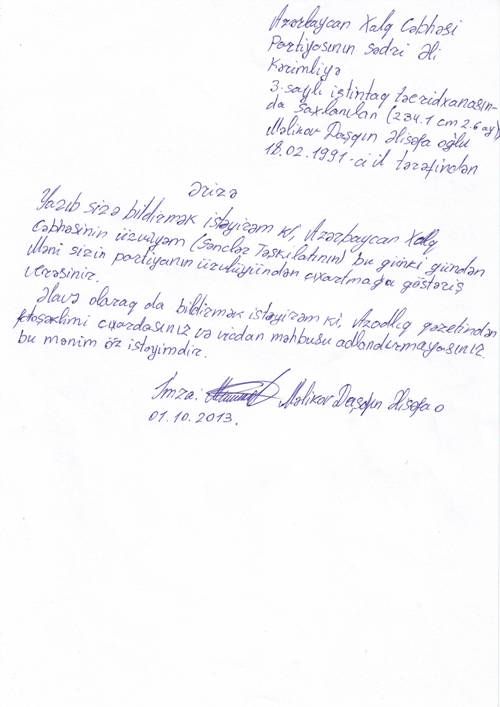 Azərbaycan Xalq Cəbhəsi
Partiyasının sədri Əli
Kərimliyə
3-saylı istintaq təcridxanasın-
da saxlanılan (234.1 cm 2.6 ay)
Məlikov Daşqın Əlisəfa oğlu
18.02.1991-ci il tərəfindən
Ərizə
Yazıb sizə bildirmək istəyirəm ki, Azərbaycan Xalq
Cəbhəsinin üzvüyəm (Gənclər Təşkilatının) bu günki gündən
Məni sizin partiyanın üzvlüyündən çıxartmağa göstəriş
verəsiniz.
Əlavə olaraq da bildirmək istəyirəm ki, Azadlıq qəzetindən
fotoşəklimi çıxardasınız və vicdan məhbusu adlandırmayasınız
bu mənim öz istəyimdir.
İmza: Məlikov Daşqın Əlisəfa o
01.10.2013.